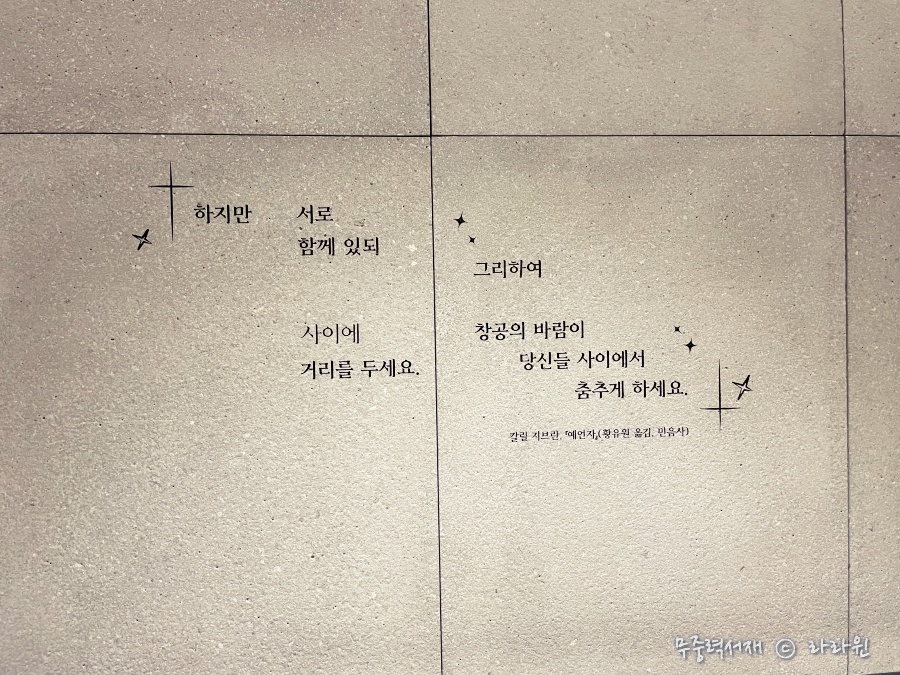 하지만 서로
함께 있되
사이에
거리를 두세요.
그리하여
창공의 바람이
당신들 사이에서
춤추게 하세요.
칼릴 지브란, 『예언자』(황유원 옮김, 민음사)
무중력서재 © 라라원